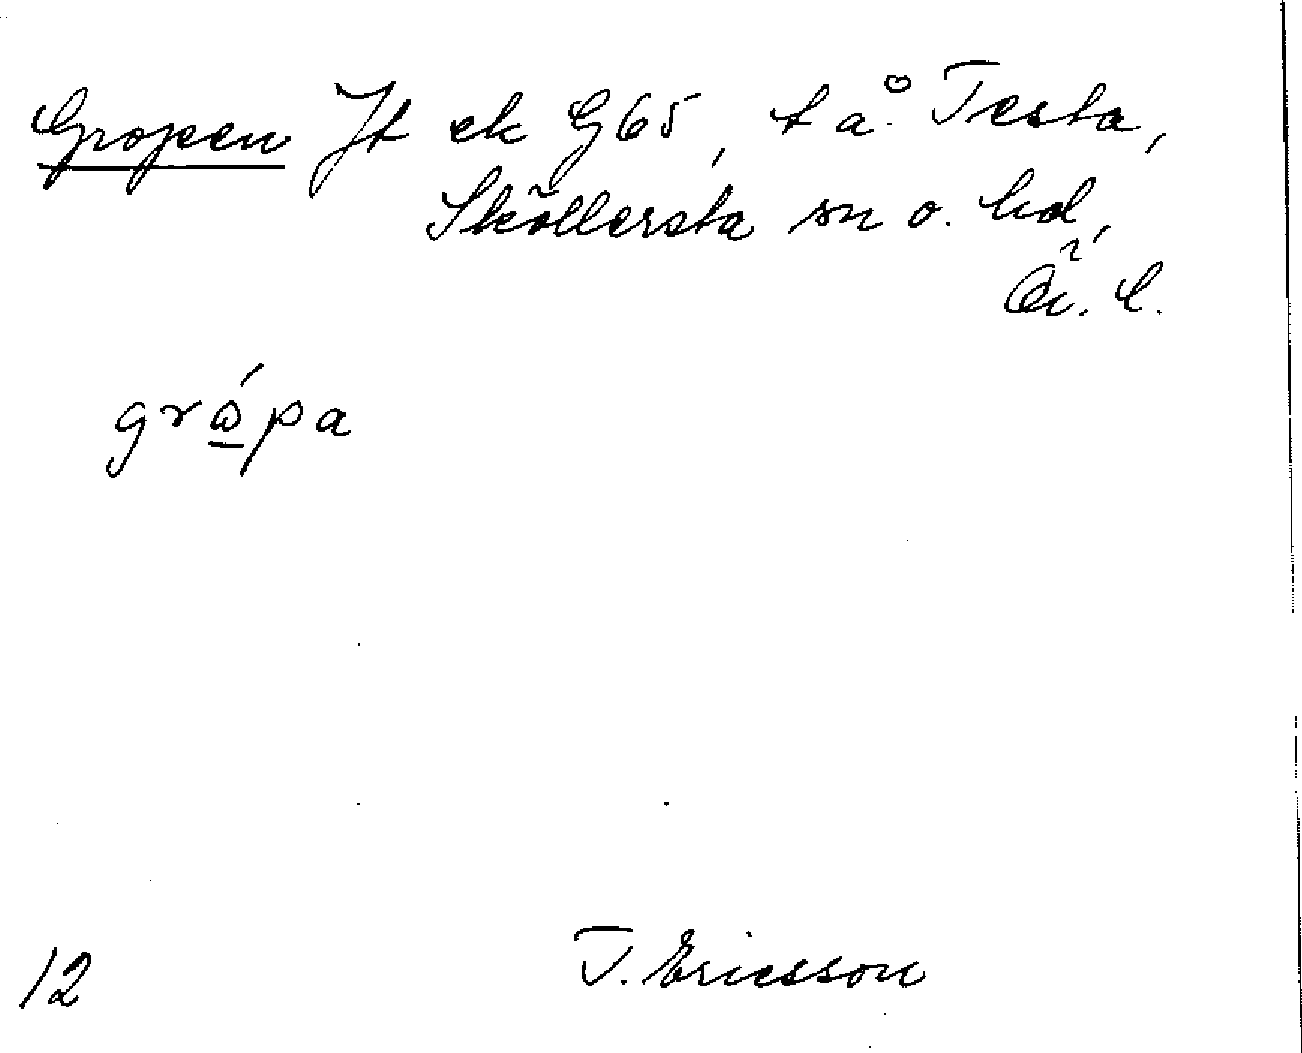 Gropen Jt ek G65, t å. Testa,
Sköllersta sn o. hd,
Ör. l.
grώ̲pa
12 T. Ericsson